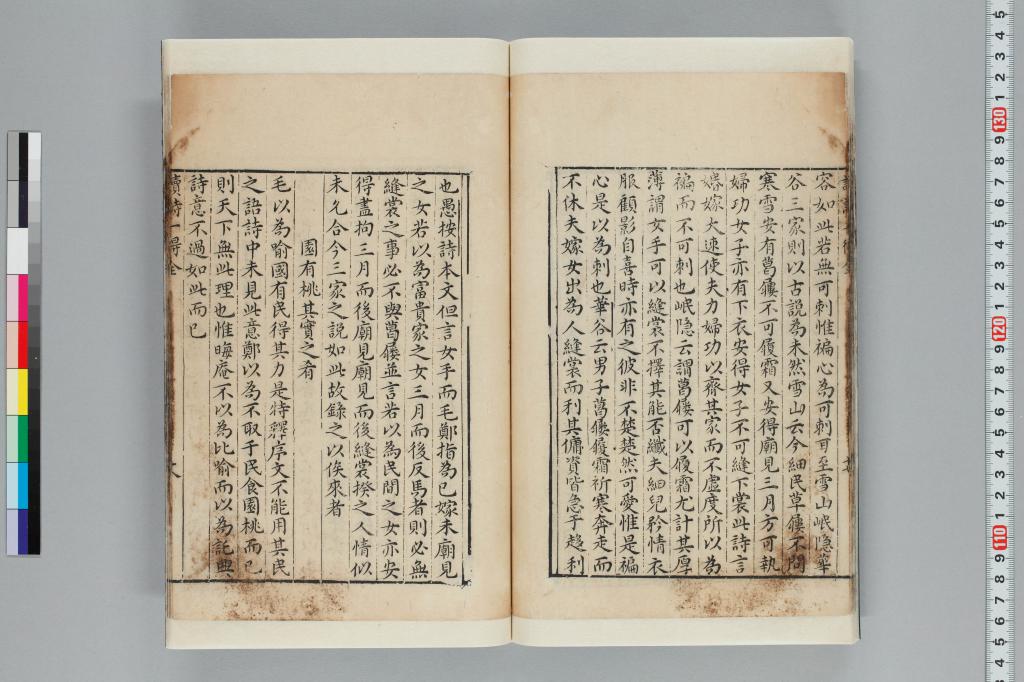 容如此若無可刺惟褊心為可刺耳至雪山岷隱華
谷三家則以古説為未然雪山云今細民草屨不問
寒雪安有葛屨不可履霜又安得廟見三月方可執
婦功女子亦有下衣安得女子不可縫下裳此詩言
婚嫁大速使夫力婦功以齊其家而不虛度所以為
褊而不可刺也岷隱云謂葛屨可以履霜尤計其厚
薄謂女手可以縫裳不擇其能否纖夫細兒矜情衣
服顧影自喜時亦有之彼非不楚楚然可愛惟是褊
心是以為刺也華谷云男子葛屨履霜祈寒奔走而
不休夫嫁女出為人縫裳而利其傭資皆急于趨利
也愚按詩本文但言女手而毛鄭指為已嫁未廟見
之女若以為富貴家之女三月而後反馬者則必無
縫裳之事必不與葛屨並言若以為民間之女亦安
得盡拘三月而後廟見廟見而後縫裳揆之人情似
未允合今三家之説如此故錄之以俟來者
園有桃其實之肴
毛以為喻國有民得其力是特釋序文不能用其民
之語詩中未見此意鄭以為不取于民食園桃而已
則天下無此理也惟晦庵不以為比喻而以為託興
詩意不過如此而已
讀詩一得全